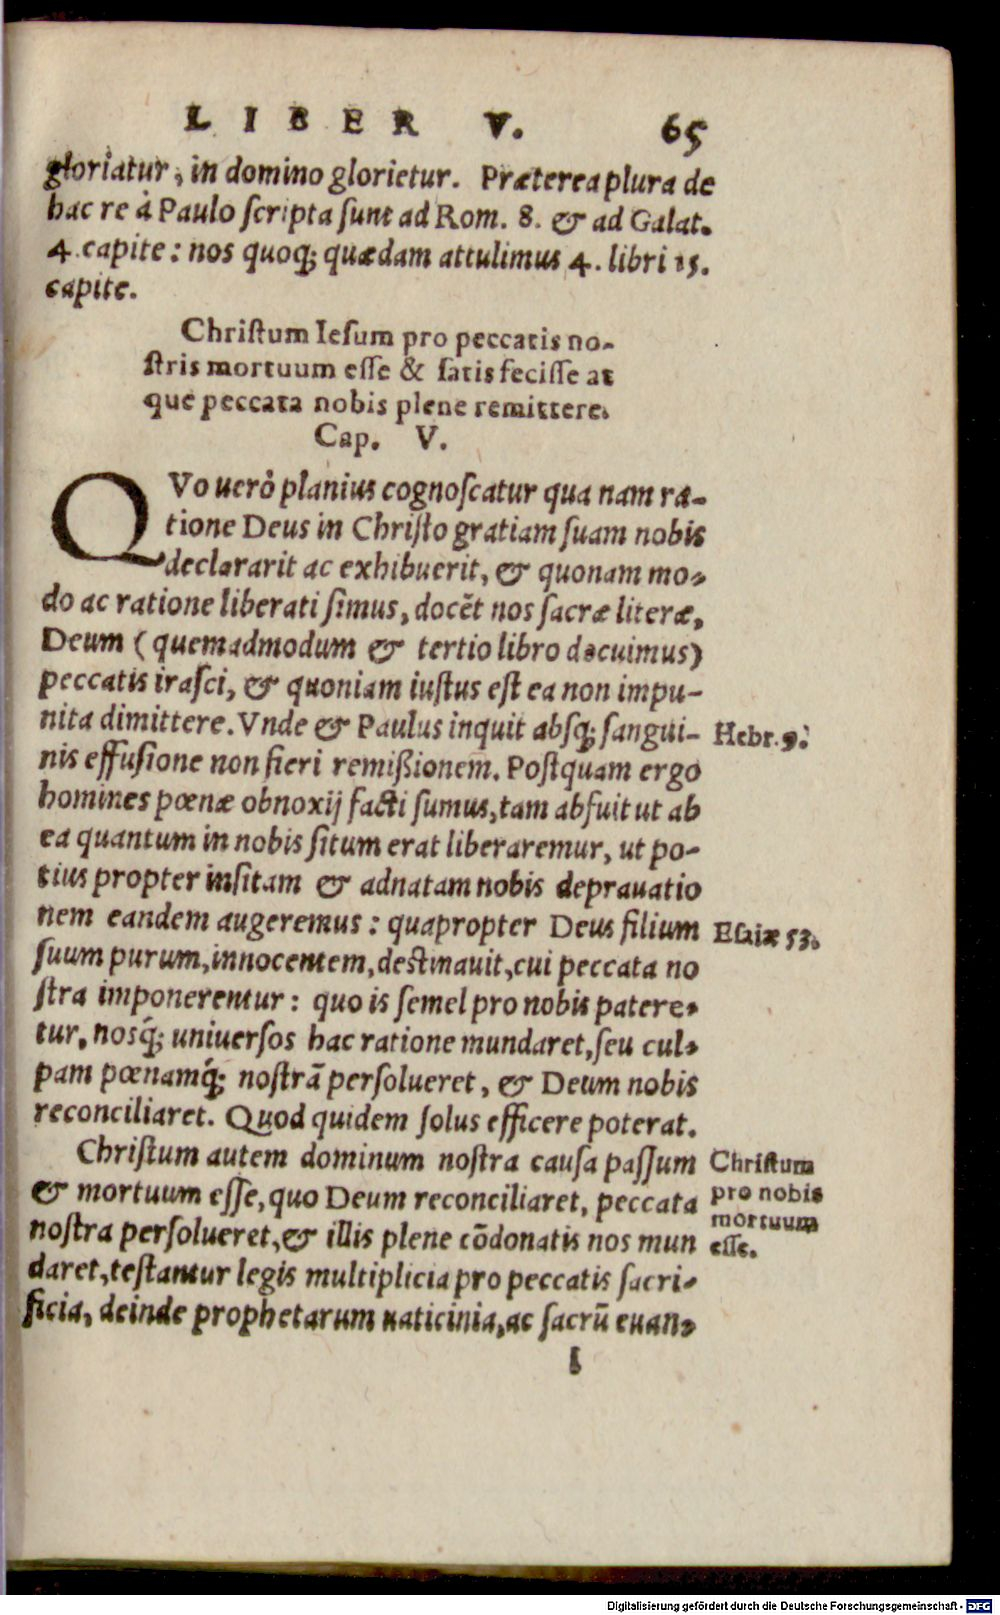 LIBER V. 65
gloriatur, in domino glorietur. Præterea plura de
hac re à Paulo ſcripta ſunt ad Rom. 8. & ad Galat.
4. capite: nos quoq; quædam attulimus 4. libri 15.
capite.
Chriſtum Ieſum pro peccatis no-
ſtris mortuum eſſe & ſatisfeciſſe at
que peccata nobis plene remittere.
Cap. V.
QVo uerò planius cognoſcatur qua nam ra-
tione Deus in Chriſto gratiam ſuam nobis
declararit ac exhibuerit, & quonam mo-
do ac ratione liberati ſimus, docẽt nos ſacræ literæ,
Deum (quemadmodum & tertio libro docuimus)
peccatis iraſci, & quoniam iuſtus eſt ea non impu-
nita dimittere. Vnde & Paulus inquit abſq; ſangui-
Hebr. 9.
nis effuſione non fieri remißionem. Poſtquam ergo
homines pœnæ obnoxij facti ſumus, tam abfuit ut ab
ea quantum in nobis ſitum erat liberaremur, ut po-
tius propter inſitam & adnatam nobis deprauatio
nem eandem augeremus: quapropter Deus filium
Eſaiæ 53.
ſuum purum, innocentem, deſtinauit, cui peccata no
ſtra imponerentur: quo is ſemel pro nobis patere-
tur, nosq́; uniuerſos hac ratione mundaret, ſeu cul-
pam pœnamq́; noſtrã perſolueret, & Deum nobis
reconciliaret. Quod quidem ſolus efficere poterat.
Chriſtum autem dominum noſtra cauſa paſſum
& mortuum eſſe, quo Deum reconciliaret, peccata
noſtra perſolueret, & illis plene cõdonatis nos mun
daret, teſtantur legis multiplicia pro peccatis ſacri-
ficia, deinde prophetarum uaticinia, ac ſacrũ euan-
Chriſtum
pro nobis
mortuum
eſſe.
I
Digitalisierung gefördert durch die Deutsche Forschungsgemeinschaft - DFG